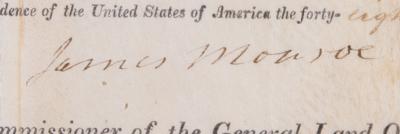 dence of the United States of America the forty-eigh
James Monroe
mmissioner of the General Land O